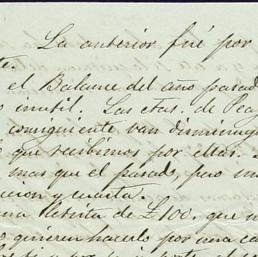 La anterior fué por
te.
el Balance del año pasad
o inutil. Las ctas. de Pag
consiguiente van disminuy
que recibimos por ellas.
mas que el pasado, pero un
cion y cuarta.
una Remita de £100, que n
o quieren hacerlo por una ca